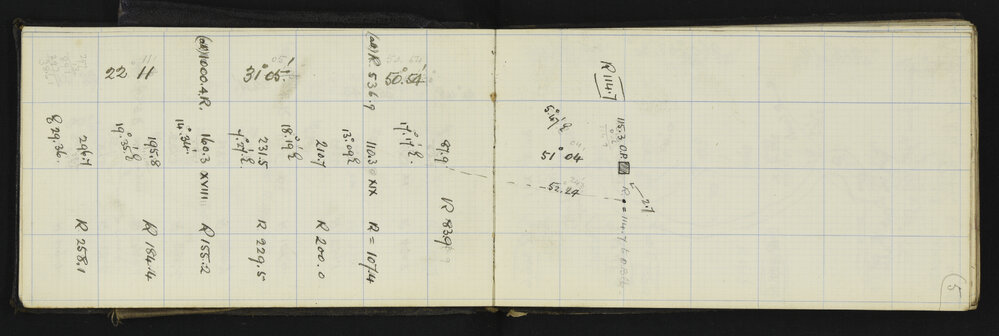 22 11
(all) 1000.4.R.
31° 05'
(all) R 536.9
50° 54'
14° 34'
19° 35' E
E 29.36.
296.1
195.8
160.3 XVIII
231.5
7° 27' E.
18° 19' E
210.7
13° 09' E
110.3 ○ XIX
17° 17' E.
87.9
R 258.1
R 184.4
R 155.2
R 229.5
R 200.0
R = 107.4
R 83.9
R 114.7
115.3 O.P.
5° 47' E
51° 04
52.24
2.7
5